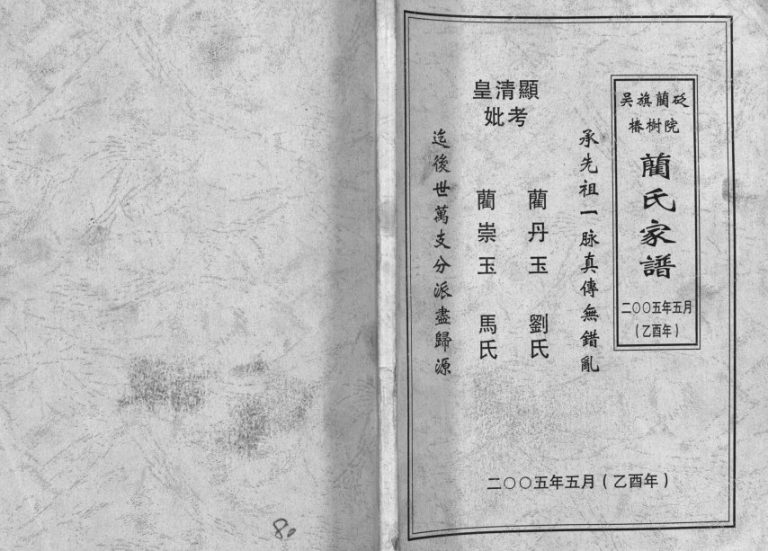 吴旗藺砭
椿樹院
藺氏家譜
二〇〇五年五月
（乙酉年）
承先祖一脉真傳無錯亂
皇清顯
妣考
藺丹玉 劉氏
藺崇玉 馬氏
迄後世萬支分派盡歸源
二〇〇五年五月（乙酉年）
80